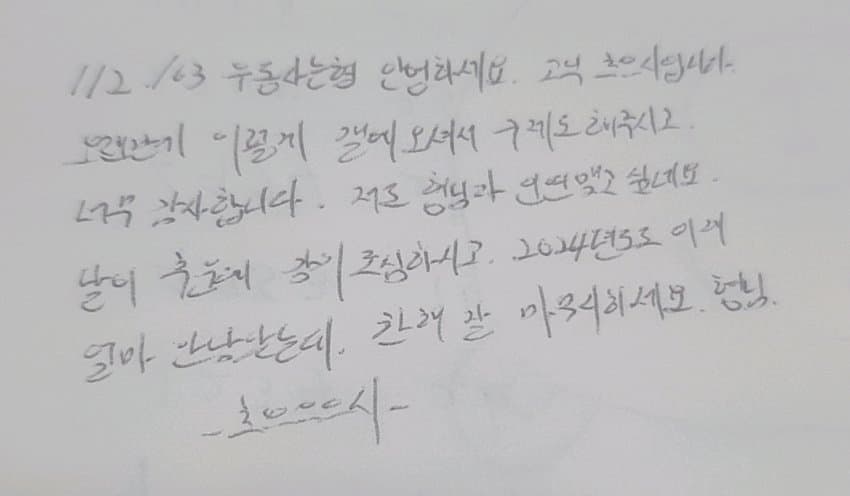 112./163 두동사는형 안녕하세요. 고닉 흐으시입니다.
오랜만에 이렇게 갤에 오셔서 구제도 해주시고.
너무 감사합니다. 저도 형님과 인연맺고 싶네요.
날이 추운데 감기 조심하시고. 2024년도도 이제
얼마 안남았는데. 한해 잘 마무리하세요. 형님.
- 흐으으으시 -